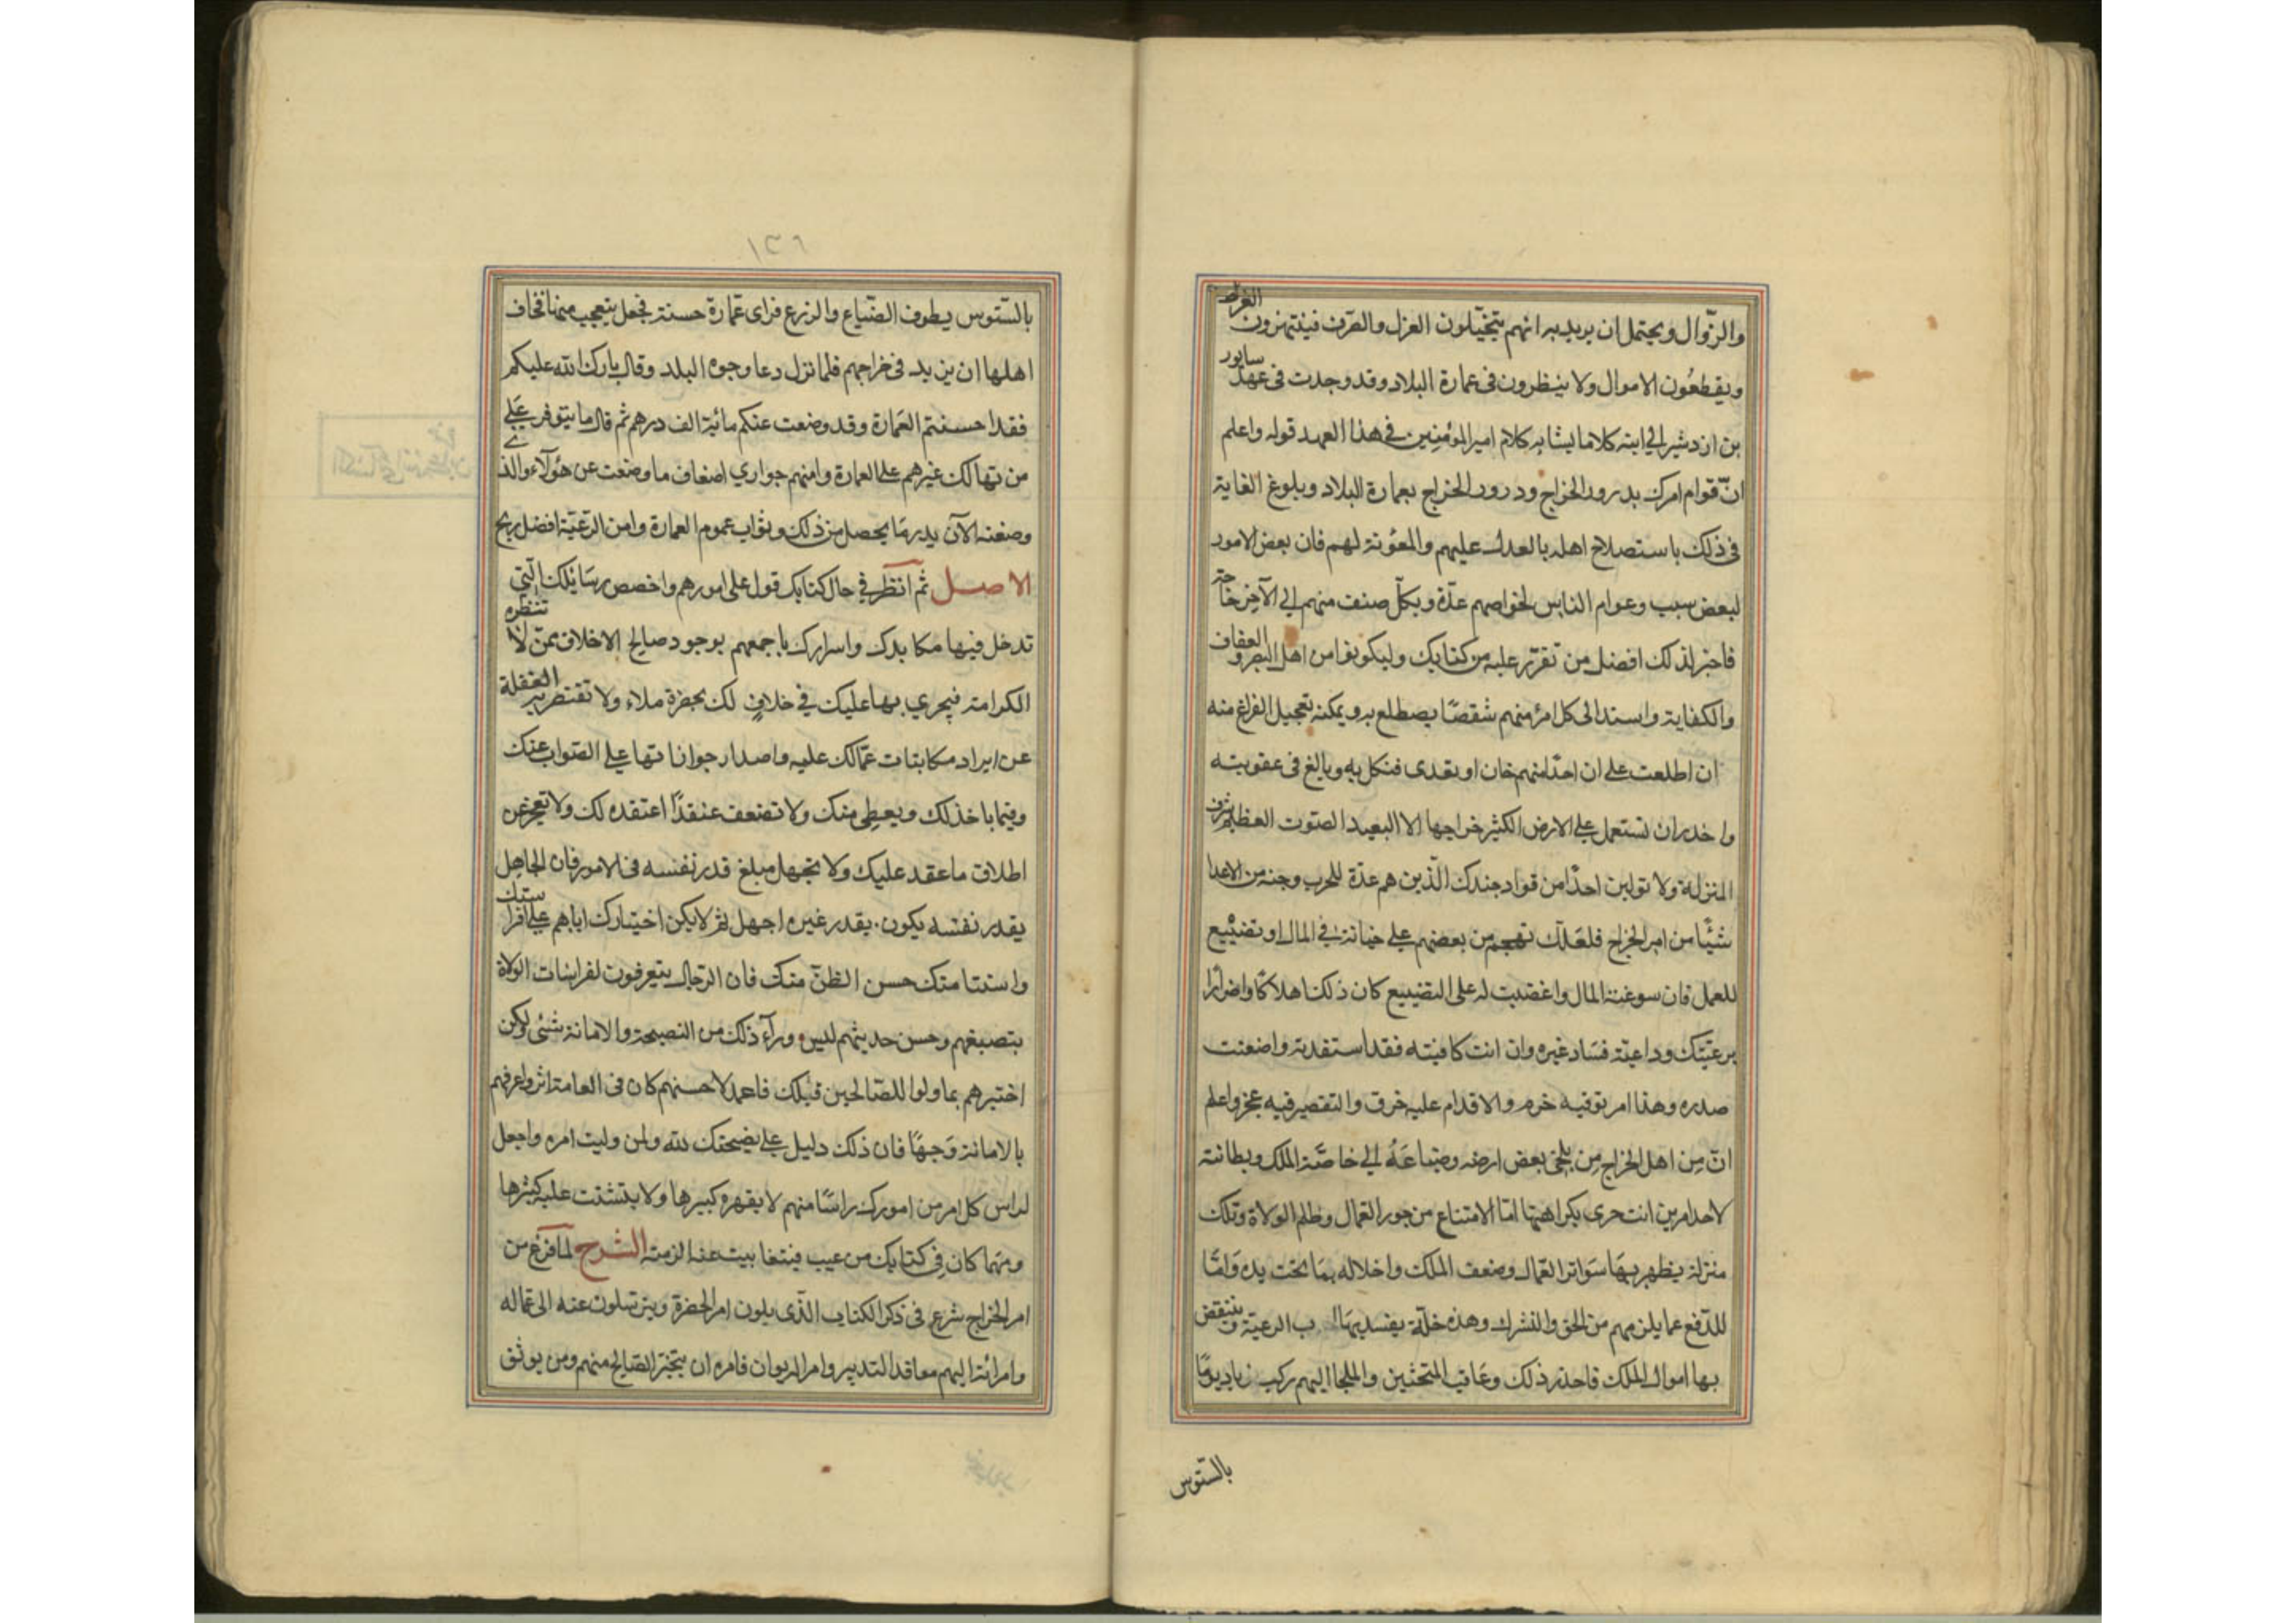 والزّوال ويحتمل ان يريد به انهم يتخيّلون العزل والصّرف فينتهزون الفرص
ويقطعُون الاموال ولا ينظرون فى عمارة البلاد وقد وجدت فى عهد سابور
بن ازدشير الى ابنه كلاما يشابه كلام امير المؤمنين فى هذا العهد قوله واعلم
انّ قوام امرك بدرور الخراج ودرور الخراج بعمارة البلاد وبلوغ الغاية
فى ذلك باستصلاح اهله بالعدل عليهم والمعؤنة لهم فان بعض الامور
لبعض سبب وعوام الناس لخواصهم عدّة وبكلّ صنف منهم الى الآخر حاجة
فاختر لذلك افضل من تقرّر عليه من كتابك وليكونوا من اهل البصر والعفاف
والكفاية واستدالى كل امرٔ منهم شقصًا يضطلع به ويمكنه تعجيل الفراغ منه
ان اطلعت على ان احدًا منهم خان او تعدى فنكل به وبالغ فى عقوبته
واحذر ان تستعمل على الارض الكثير خراجها الا البعيد الصّوت العظيم شرف
المنزلة ولا تولين احدًا من قواد جندك الّذين هم عدّة للحرب وجنة من الاعدا
شئًا من امر الخراج فلعلّك تهجم من بعضهم على خيانة فى المال او تضييع
للعمل فان سوغته المال واغضيت له على التضييع كان ذلك اهلاكًا واضرارًا
برعيّتك وداعية فسَاد غيره وان انت كافيته فقد استفدته واضعنت
صدره وهذا امر توقيه خرم والاقدام عليه خرق والتقصير فيه عجز واعلم
انّ مِن اهل الخراج مِن يلجى بعض ارضه وضياعَهُ الى خاصّة الملك وبطانته
لاحد امرين انت حرى بكراهيتها امّا الامتناع من جور العمّال وظلم الولاة وتلك
منزلة يظهر بهَا سَواتر العّمال وضعف الملك واخلاله بمَا تحت يده وَامّا
للدّفع عما يلزمهم من الحق والنشرك وهذه خلّة يفسد بهَا ب الرعيّة وينتقض
بها اموال الملك فاحذر ذلك وعَاقب المتحثين والملجا اليهم ركب زياد يومًا
بالسّتوس
١٣٦
بالسّتوس يطوف الضّياع والزرع فراى عّمارة حسنة فجعل يتعجب منها فخاف
اهلها ان يزيد فى خراجهم فلما نزل دعا وجوه البلد وقال بارك الله عليكم
فقد احسنتم العَمارة وقد وضعت عنكم مائية الف درهم ثم قال ما يتوفر عَلى
من تهالك غيرهم على العمارة وامنهم جواري اضعاف ما وضعت عن هٰؤلاء والذى
وضعته الآن يدبر مَا يحصل من ذلك وثواب عموم العمارة وامن الرّعيّة افضل ربح
الاصل ثم انظر فى حال كتابك قول على امورهم واخصص رسَائلك الّتى
تدخل فيها مكايدك واسرارك باجمعهم بوجود صالح الاخلاق ممّن لا تنظره
الكرامة فيجري بها عليك في خلافٍ لك بحضرة ملاء ولا تقتصر به الغفلة
عن ايراد مكاتبات عمّالك عليه واصدار جواناتها على الصّواب عنك
وفيما ياخذ لك ويعطى منك ولا تضعف عنقدًا اعتقده لك ولا تعجز عن
اطلاق ما عقد عليك ولا تجهل مبلغ قدر نفسه فى الامور فان الجاهل
يقدر نفسه يكون بقدر غيره اجهل ثم لا يكن اختيارك اياهم على افراستك
واستنامتك حسن الظنّ منك فان الرّجال يتعرفون لفراسات الولاة
بتصنيعهم وحسن حديثهم ليس ورآء ذلك من النصيحة والامانة شئ ولكن
اختبرهم بما ولوا للصّالحين قبلك فاعمد لاحسنهم كان فى العامة اثر واعرفهم
بالامانة وَجهًا فان ذلك دليل على نضيحتك لله ولمن وليت امره واجعل
لراس كل امر من امورك راسًا منهم لا يقهره كبيرها ولا يتشتت عليه كثيرها
ومهما كان فى كتابك من عيب فتغابيت عنه الزمته الشرح لما فرغ من
امر الخراج شرع فى ذكر الكتاب الّذى يلون امر الحضرة ويترسّلون عنه الى عّماله
وامرائه اليهم معاقد التدبير وامر الديوان فامره ان يتخير الصّالح منهم ومن يوثق